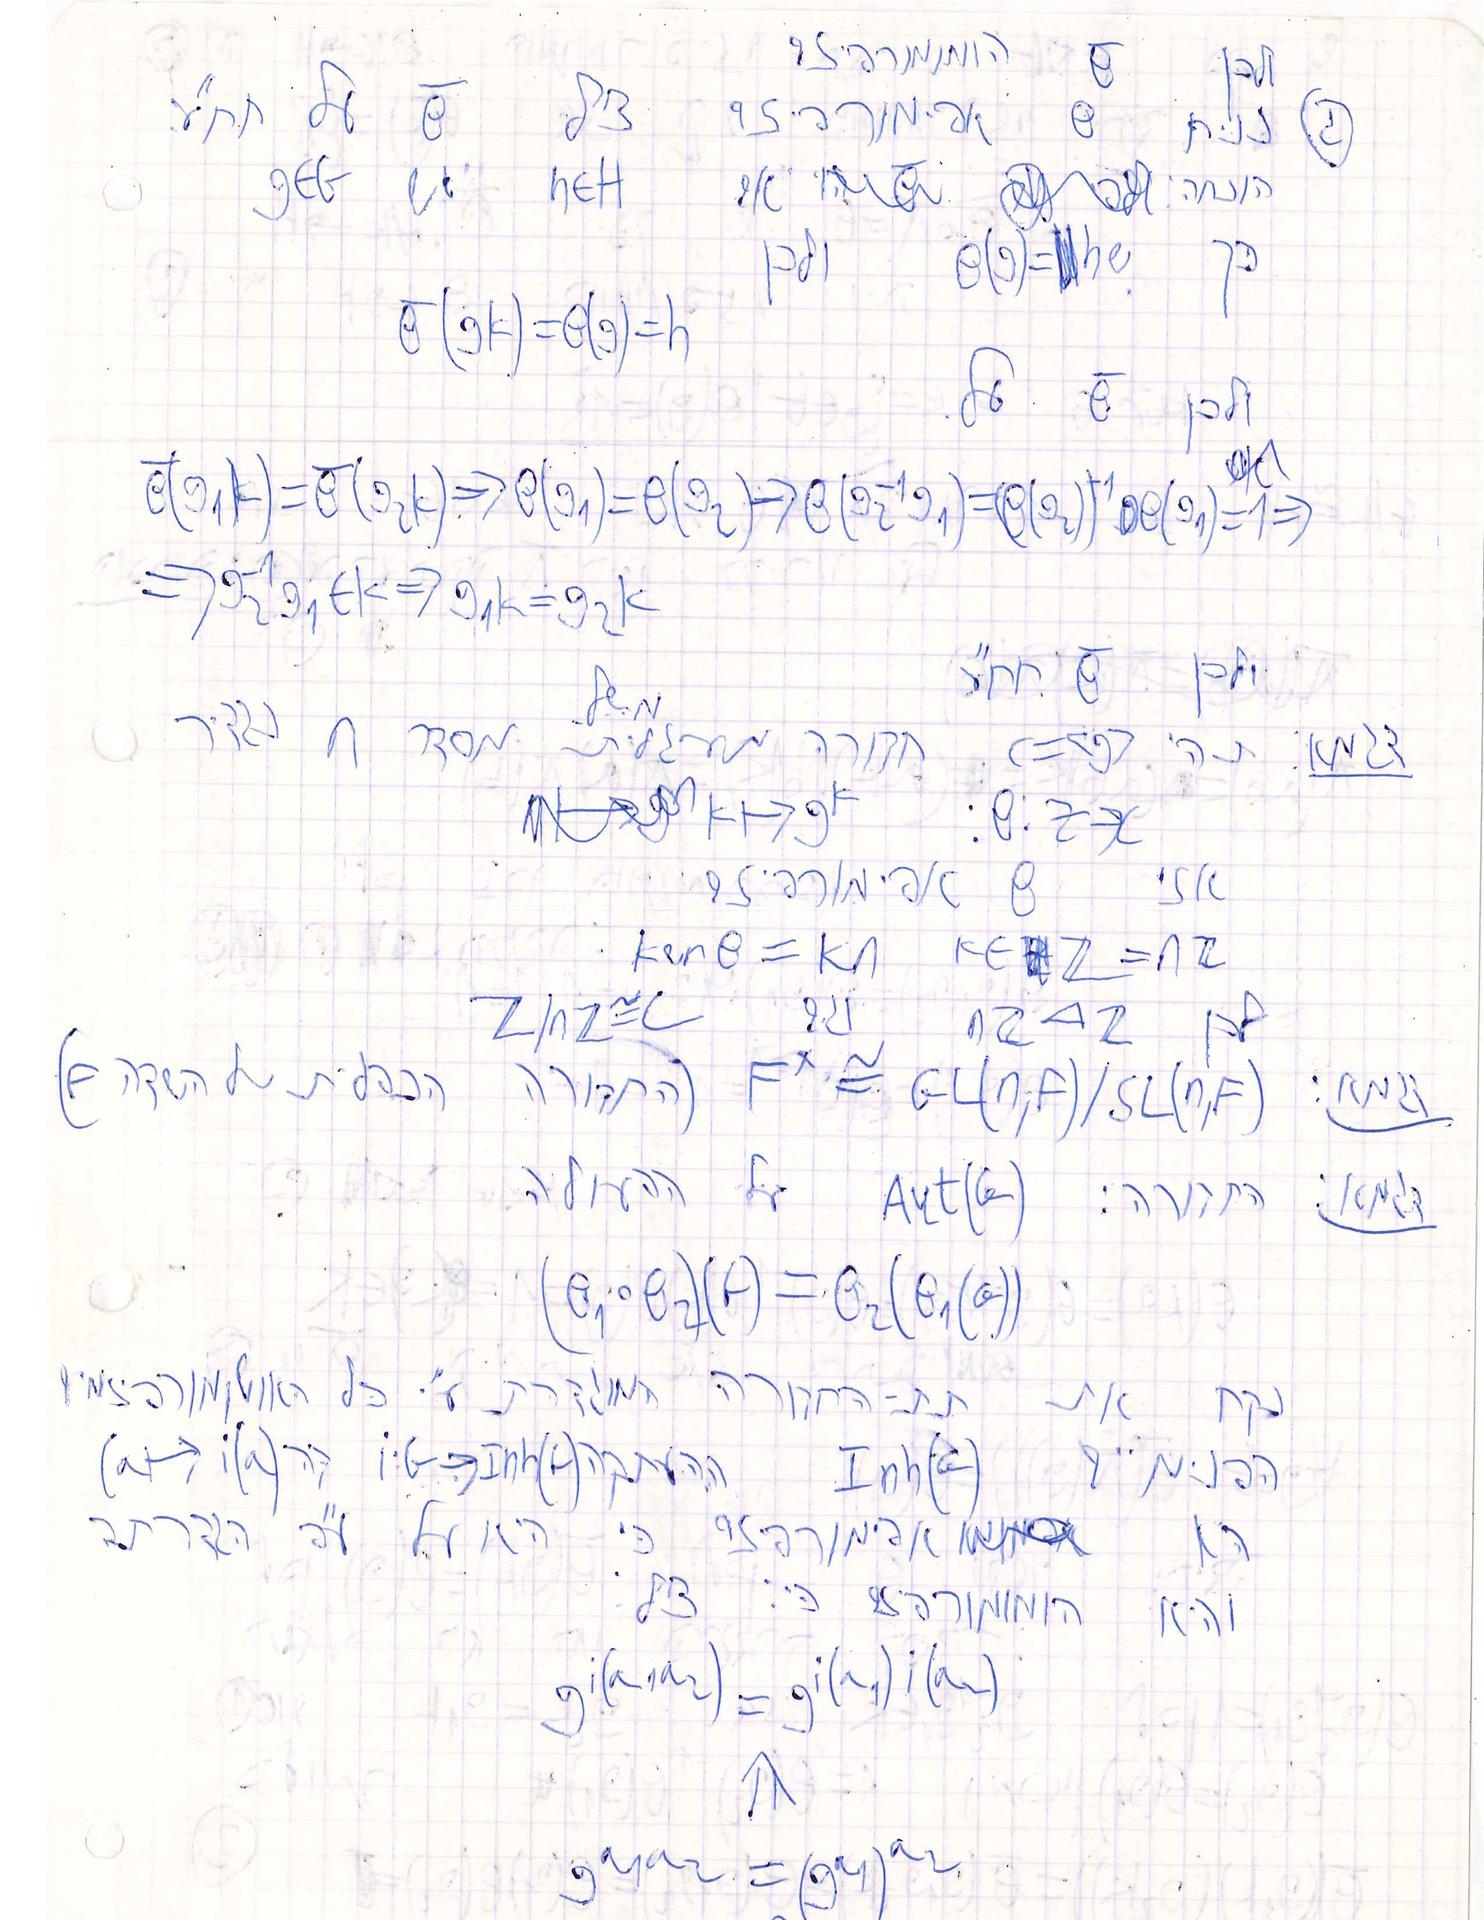 ולכן θ̄ הומומורפיזם
ג) נניח θ אפימורפיזם צ"ל θ̄ על חח"ע
הוכחה: יהי אם h∈H יש g∈G
כך ש θ(g)=h ולכן
θ̄(gK)=θ(g)=h
ולכן θ̄ על.
θ̄(g₁K)=θ̄(g₂K)⇒θ(g₁)=θ(g₂)⇒θ(g₂⁻¹g₁)=(θ(g₂))⁻¹θ(g₁)=1⇒
⇒g₂⁻¹g₁∈K⇒g₁K=g₂K
ולכן θ̄ חח"ע
דוגמא: תהי C=<g> חבורה מעגלית מסדר n נגדיר
θ: Z→C : k↦g^k
אזי θ אפימורפיזם
kerθ = kn k∈Z = nZ
לכן nZ◁Z וגם Z/nZ≅C
דוגמא: F^x ≅ GL(n,F)/SL(n,F) (החבורה הכפלית של השדה F)
דוגמא: החבורה: Aut(G) על הפעולה
(θ₁∘θ₂)(G)=θ₂(θ₁(G))
נקח את תת-החבורה המוגדרת ע"י כל האוטומורפיזמים
הפנימיים Inn(G) ההעתקה i:G→Inn(G) (a↦i(a))
היא אפימורפיזם כי היא על ע"פ הגדרתה
והיא הומומורפיזם כי: צ"ל:
g^{i(a₁a₂)} = g^{i(a₁)i(a₂)}
⇑
g^{a₁a₂} = (g^{a₁})^{a₂}